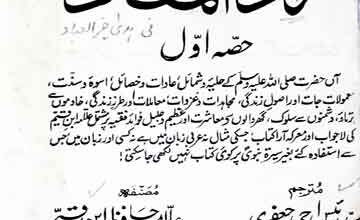 فی ہدی خیر العباد
حصہ اول
آں حضرت صلی اللہ علیہ وسلم کے حلیہ و شمائل عادات و خصائل اسوۂ و سنت،
معمولات حیات اور اصول زندگی، مجاہدات و غزوات معاملات اور طرز زندگی، خادموں سے
برتاؤ، دشمنوں سے سلوک، گھر والوں سے معاشرت اور عظیم و جلیل فوائد فقہیہ پر مشتمل علامہ ابن قیم
کی لاجواب اور معرکہ آرا کتاب! جسکی مثال نہ عربی زبان میں ہے نہ کسی اور زبان میں جس
سے استفادہ کئے بغیر سیرۃ نبوی پر کوئی کتاب نہیں لکھی جا سکتی!
مترجم مصنفہ
جعفری حافظ ابن قیم